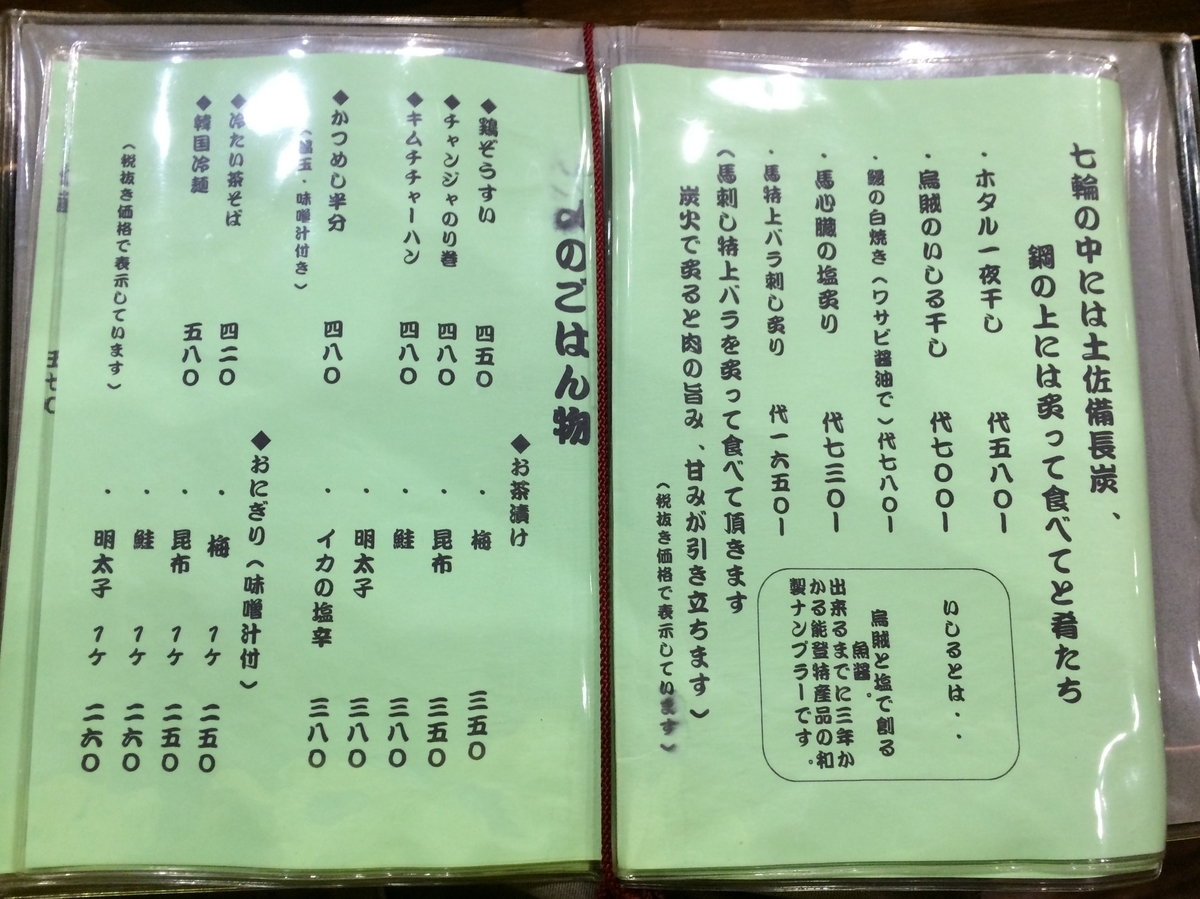 七輪の中には土佐備長炭、
鋼の上には炙って食べてと肴たち
・ホタル一夜干し 代五八〇ー
・烏賊のいしる干し 代七〇〇ー
・鰻の白焼き（ワサビ醤油で）代七八〇ー
・馬心臓の塩炙り 代七三〇ー
・馬特上バラ刺し炙り 代一六五〇ー
（馬刺し特上バラを炙って食べて頂きます
炭火で炙ると肉の旨み、甘みが引き立ちます）
（税抜き価格で表示しています）
いしるとは・・
烏賊と塩で創る
魚醤。
出来るまでに三年か
かる能登特産品の和
製ナンプラーです。
のごはん物
◆鶏ぞうすい 四五〇
◆チャンジャのり巻 四八〇
◆キムチチャーハン 四八〇
◆かつめし半分 四八〇
玉・味噌汁付き）
◆冷たい茶そば 四二〇
◆韓国冷麺 五八〇
（税抜き価格で表示しています）
◆お茶漬け
・梅 三五〇
・昆布 三五〇
・鮭 三八〇
・明太子 三八〇
・イカの塩辛 三八〇
◆おにぎり（味噌汁付）
・梅 1ケ 二五〇
・昆布 1ケ 二五〇
・鮭 1ケ 二六〇
・明太子 1ケ 二六〇